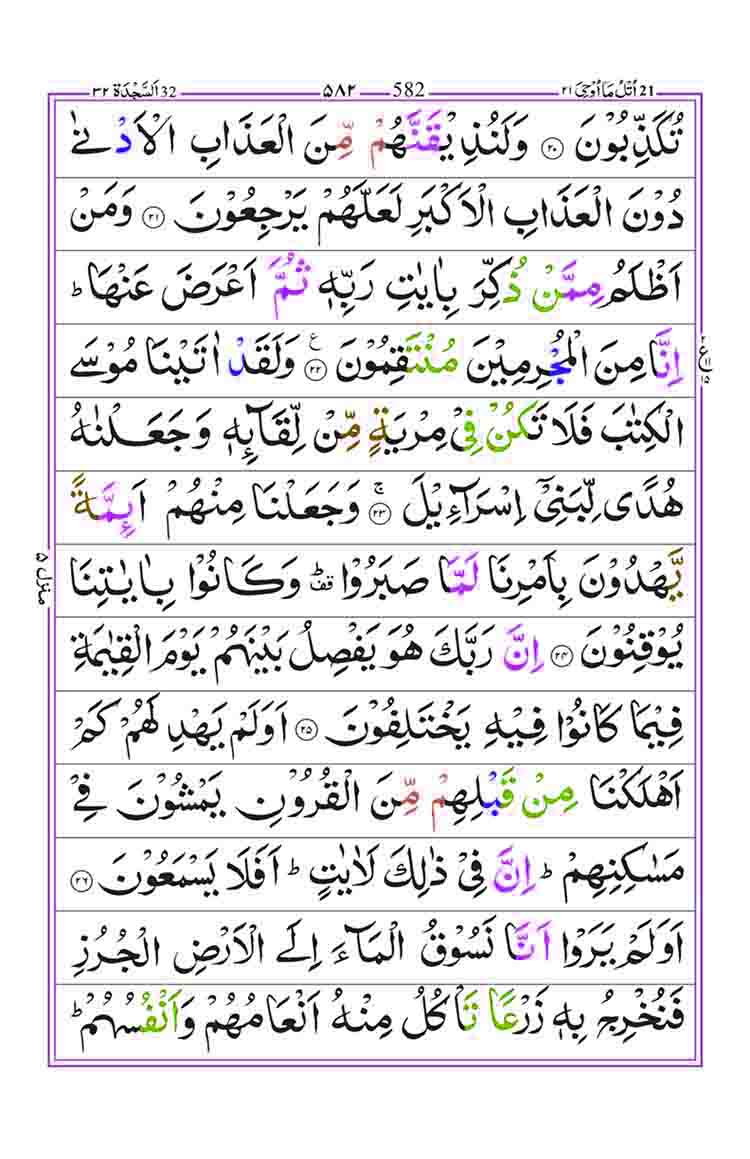 اُتْلُ مَاۤ اُوْحِیَ ٢١ 21 582 ۵۸۲ اَلسَّجْدَة ٣٢ 32
تُكَذِّبُوْنَ ۲۰ وَلَنُذِیْقَنَّهُمْ مِّنَ الْعَذَابِ الْاَدْنٰی
دُوْنَ الْعَذَابِ الْاَكْبَرِ لَعَلَّهُمْ یَرْجِعُوْنَ ۲۱ وَمَنْ
اَظْلَمُ مِمَّنْ ذُكِّرَ بِاٰیٰتِ رَبِّهٖ ثُمَّ اَعْرَضَ عَنْهَا ؕ
اِنَّا مِنَ الْمُجْرِمِیْنَ مُنْتَقِمُوْنَ ۲۲ ع وَلَقَدْ اٰتَیْنَا مُوْسَی
الْكِتٰبَ فَلَا تَكُنْ فِیْ مِرْیَةٍ مِّنْ لِّقَآئِهٖ وَجَعَلْنٰهُ
هُدًی لِّبَنِیْۤ اِسْرَآءِیْلَ ۲۳ ۚ وَجَعَلْنَا مِنْهُمْ اَئِمَّةً
یَّهْدُوْنَ بِاَمْرِنَا لَمَّا صَبَرُوْا ؕ قف وَكَانُوْا بِاٰیٰتِنَا
یُوْقِنُوْنَ ۲۴ اِنَّ رَبَّكَ هُوَ یَفْصِلُ بَیْنَهُمْ یَوْمَ الْقِیٰمَةِ
فِیْمَا كَانُوْا فِیْهِ یَخْتَلِفُوْنَ ۲۵ اَوَلَمْ یَهْدِ لَهُمْ كَمْ
اَهْلَكْنَا مِنْ قَبْلِهِمْ مِّنَ الْقُرُوْنِ یَمْشُوْنَ فِیْ
مَسٰكِنِهِمْ ؕ اِنَّ فِیْ ذٰلِكَ لَاٰیٰتٍ ؕ اَفَلَا یَسْمَعُوْنَ ۲۶
اَوَلَمْ یَرَوْا اَنَّا نَسُوْقُ الْمَآءَ اِلَی الْاَرْضِ الْجُرُزِ
فَنُخْرِجُ بِهٖ زَرْعًا تَاْكُلُ مِنْهُ اَنْعَامُهُمْ وَاَنْفُسُهُمْ ؕ
ع ٢ ١١ ١٥
منزل ۵